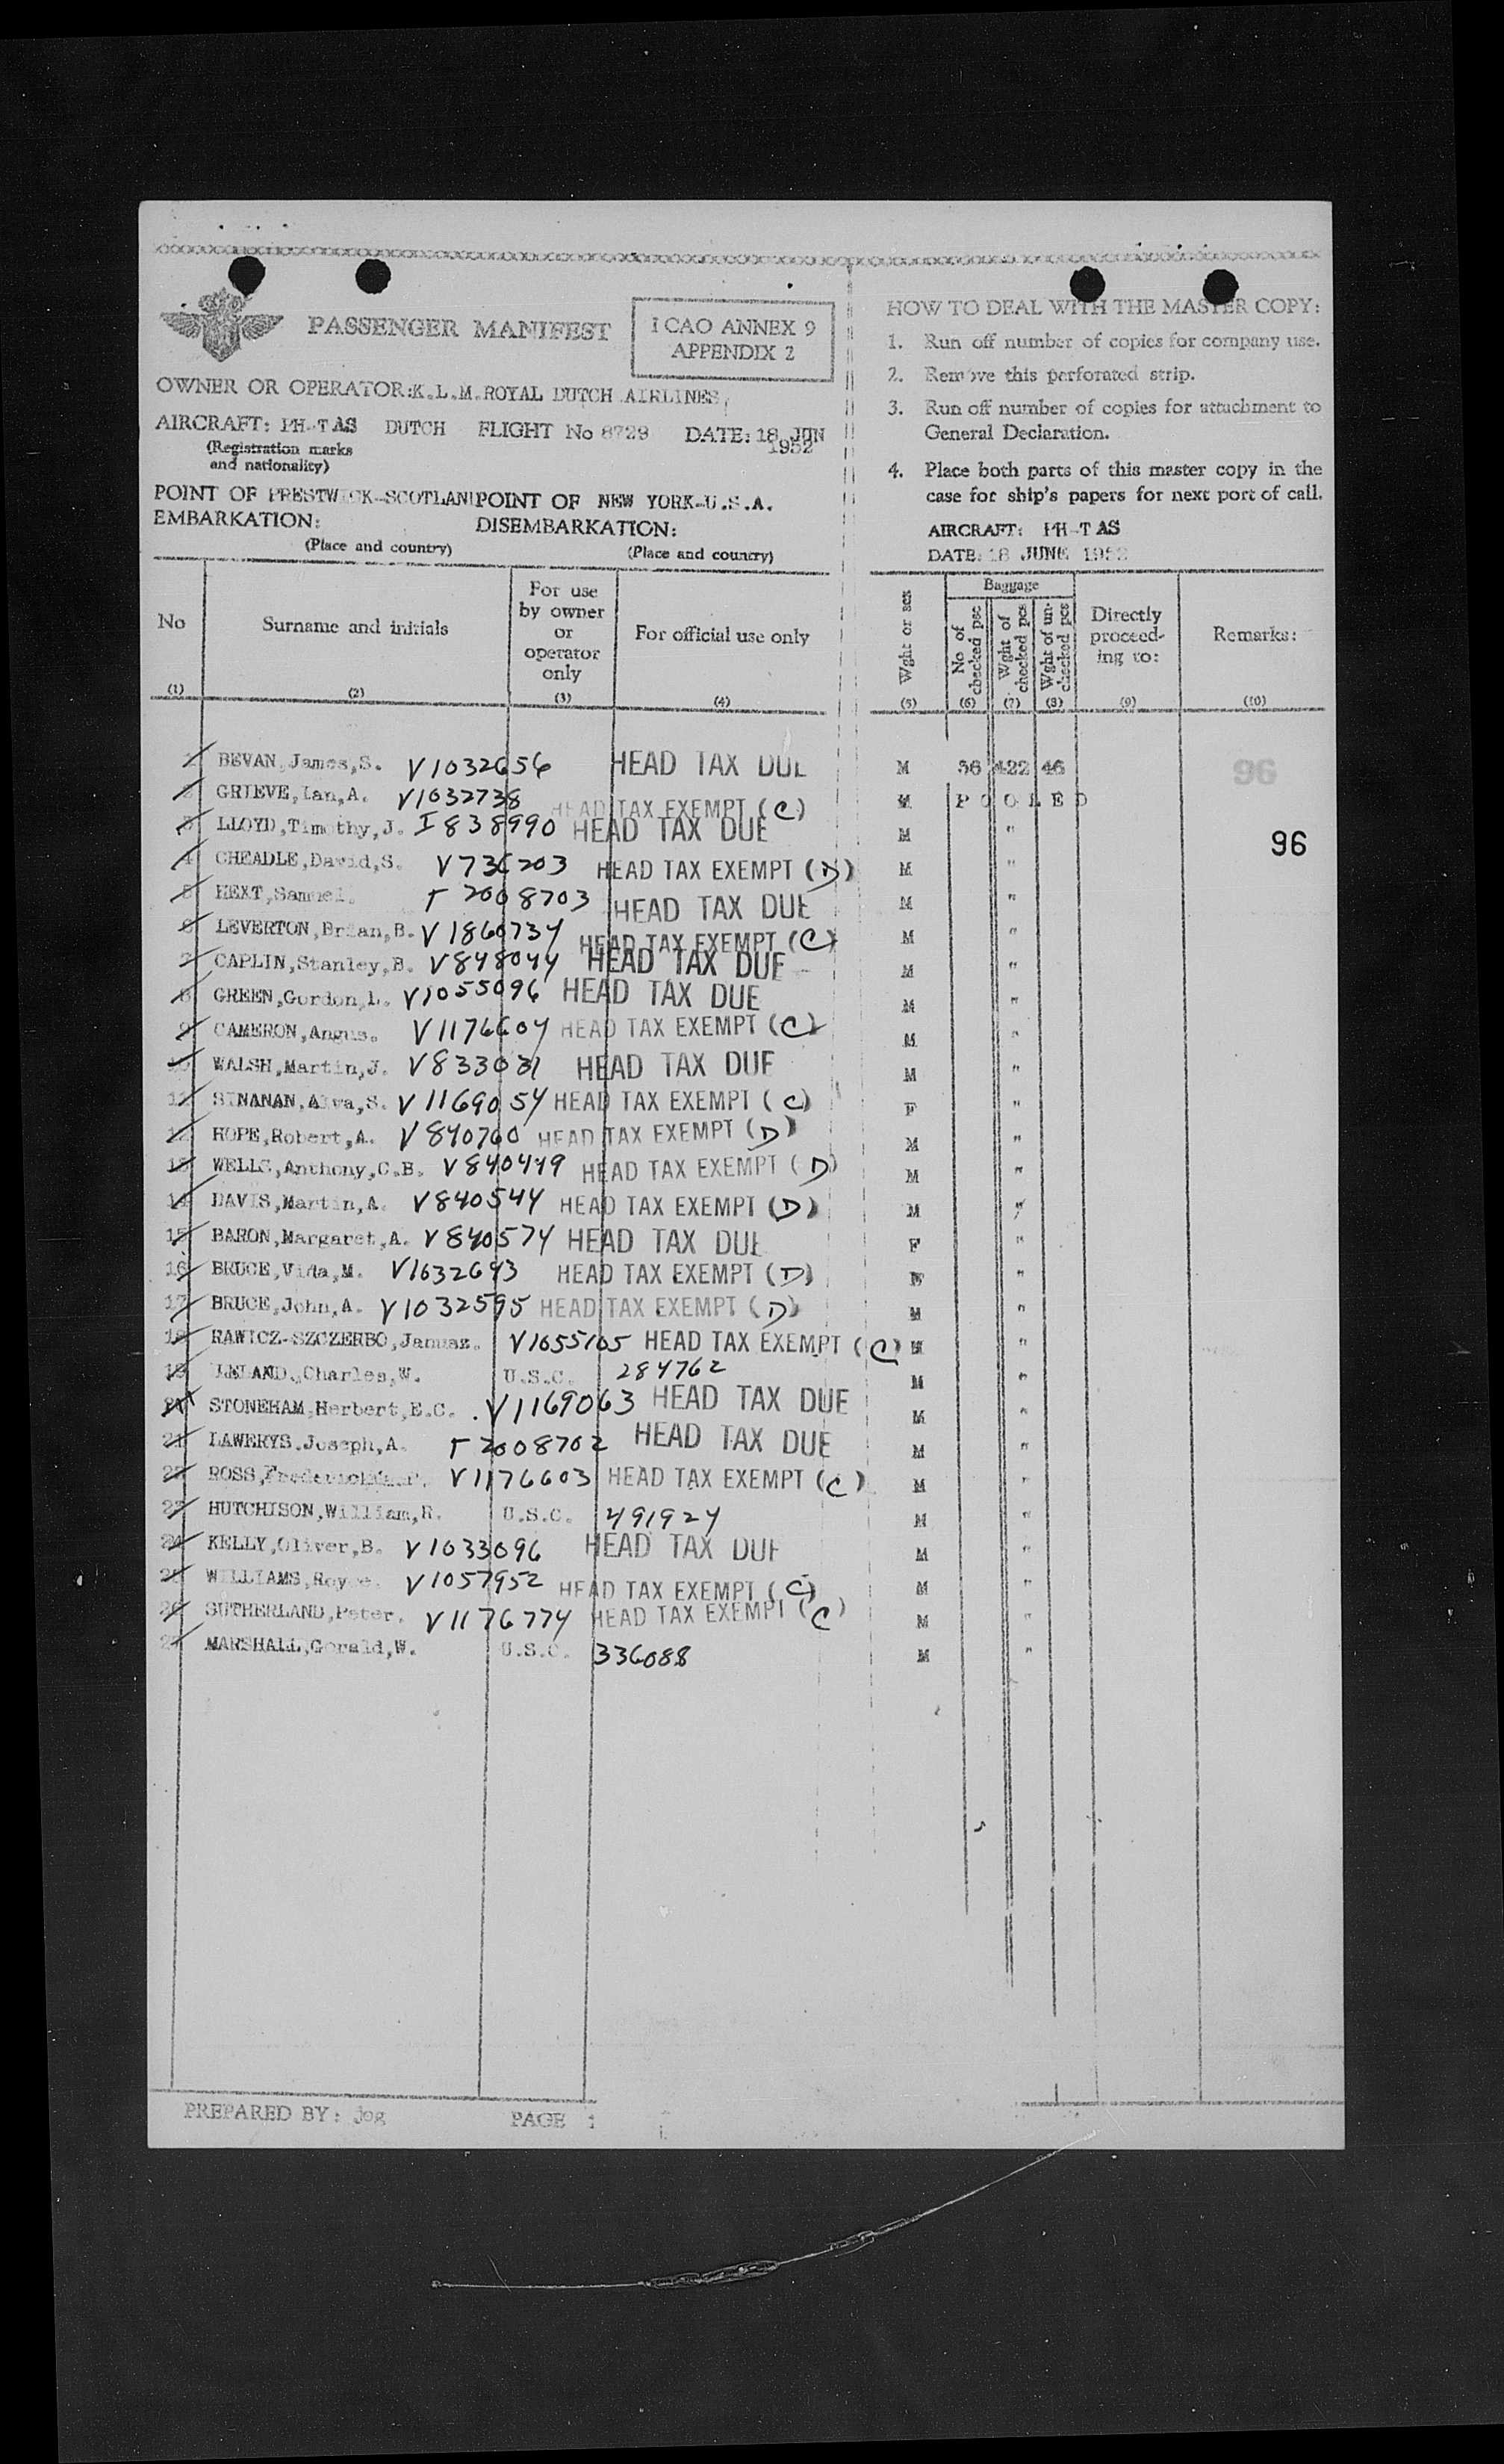 PASSENGER MANIFEST
I CAO ANNEX 9
APPENDIX 2
OWNER OR OPERATOR:K.L.M.ROYAL DUTCH AIRLINES
AIRCRAFT: PH-TAS DUTCH FLIGHT No 8729 DATE: 18 JUN
1952
(Registration marks
and nationality)
POINT OF PRESTWICK-SCOTLAN POINT OF NEW YORK-U.S.A.
EMBARKATION: DISEMBARKATION:
(Place and country) (Place and country)
HOW TO DEAL WITH THE MASTER COPY:
1. Run off number of copies for company use.
2. Remove this perforated strip.
3. Run off number of copies for attachment to
General Declaration.
4. Place both parts of this master copy in the
case for ship's papers for next port of call.
AIRCRAFT: PH-TAS
DATE: 18 JUNE 1952
No
Surname and initials
For use
by owner
or
operator
only
For official use only
Wght or sex
Baggage
No of
checked pcs
Wght of
checked pcs
Wght of un-
checked pcs
Directly
proceed-
ing to:
Remarks:
(1) (2) (3) (4) (5) (6) (7) (8) (9) (10)
1 BEVAN,James,S. V1032656 HEAD TAX DUE M 36 422 46 96
2 GRIEVE,Ian,A. V1032738 HEAD TAX EXEMPT (C) M POOLED
3 LLOYD,Timothy,J. I838990 HEAD TAX DUE M " 96
4 CHEADLE,David,S. V736203 HEAD TAX EXEMPT (D) M "
5 HEXT,Samuel. T2008703 HEAD TAX DUE M "
6 LEVERTON,Brian,B. V1860734 HEAD TAX EXEMPT (C) M "
7 CAPLIN,Stanley,B. V848044 HEAD TAX DUE M "
8 GREEN,Gordon,L. V1055096 HEAD TAX DUE M "
9 CAMERON,Angus. V1176604 HEAD TAX EXEMPT (C) M "
10 WALSH,Martin,J. V833031 HEAD TAX DUE M "
11 SINANAN,Alva,S. V1169054 HEAD TAX EXEMPT (C) F "
12 HOPE,Robert,A. V840760 HEAD TAX EXEMPT (D) M "
13 WELLS,Anthony,C.B. V840449 HEAD TAX EXEMPT (D) M "
14 DAVIS,Martin,A. V840544 HEAD TAX EXEMPT (D) M "
15 BARON,Margaret,A. V840574 HEAD TAX DUE F "
16 BRUCE,Vida,M. V1032643 HEAD TAX EXEMPT (D) F "
17 BRUCE,John,A. V1032595 HEAD TAX EXEMPT (D) M "
18 RAWICZ-SZCZERBO,Janusz. V1055105 HEAD TAX EXEMPT (C) M "
19 LELAND,Charles,W. U.S.C. 284762 M "
STONEHAM,Herbert,E.C. V1169063 HEAD TAX DUE M "
21 LAWERYS.Joseph,A. T2008702 HEAD TAX DUE M "
22 ROSS, V1176603 HEAD TAX EXEMPT (C) M "
23 HUTCHISON,William,R. U.S.C. 491924 M "
24 KELLY,Oliver,B. V1033096 HEAD TAX DUE M "
25 WILLIAMS,Royce. V1057952 HEAD TAX EXEMPT (C) M "
26 SUTHERLAND,Peter. V1176774 HEAD TAX EXEMPT (C) M "
27 MARSHALL,Gerald,W. U.S.C. 336088 M "
PREPARED BY: jog PAGE 1